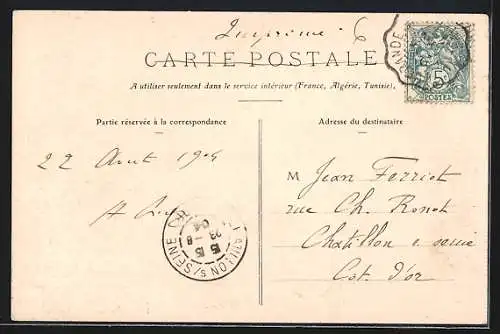 Imprimé 6
CARTE POSTALE
A utiliser seulement dans le service intérieur (France, Algérie, Tunisie).
5c
POSTES
RANDE
Partie réservée à la correspondance
Adresse du destinataire
22 Aout 1904
M Jean Ferriot
rue Ch. Ronot
Chatillon s seine
Cot. d'or
S/SEINE
15 15
23 - 8
04